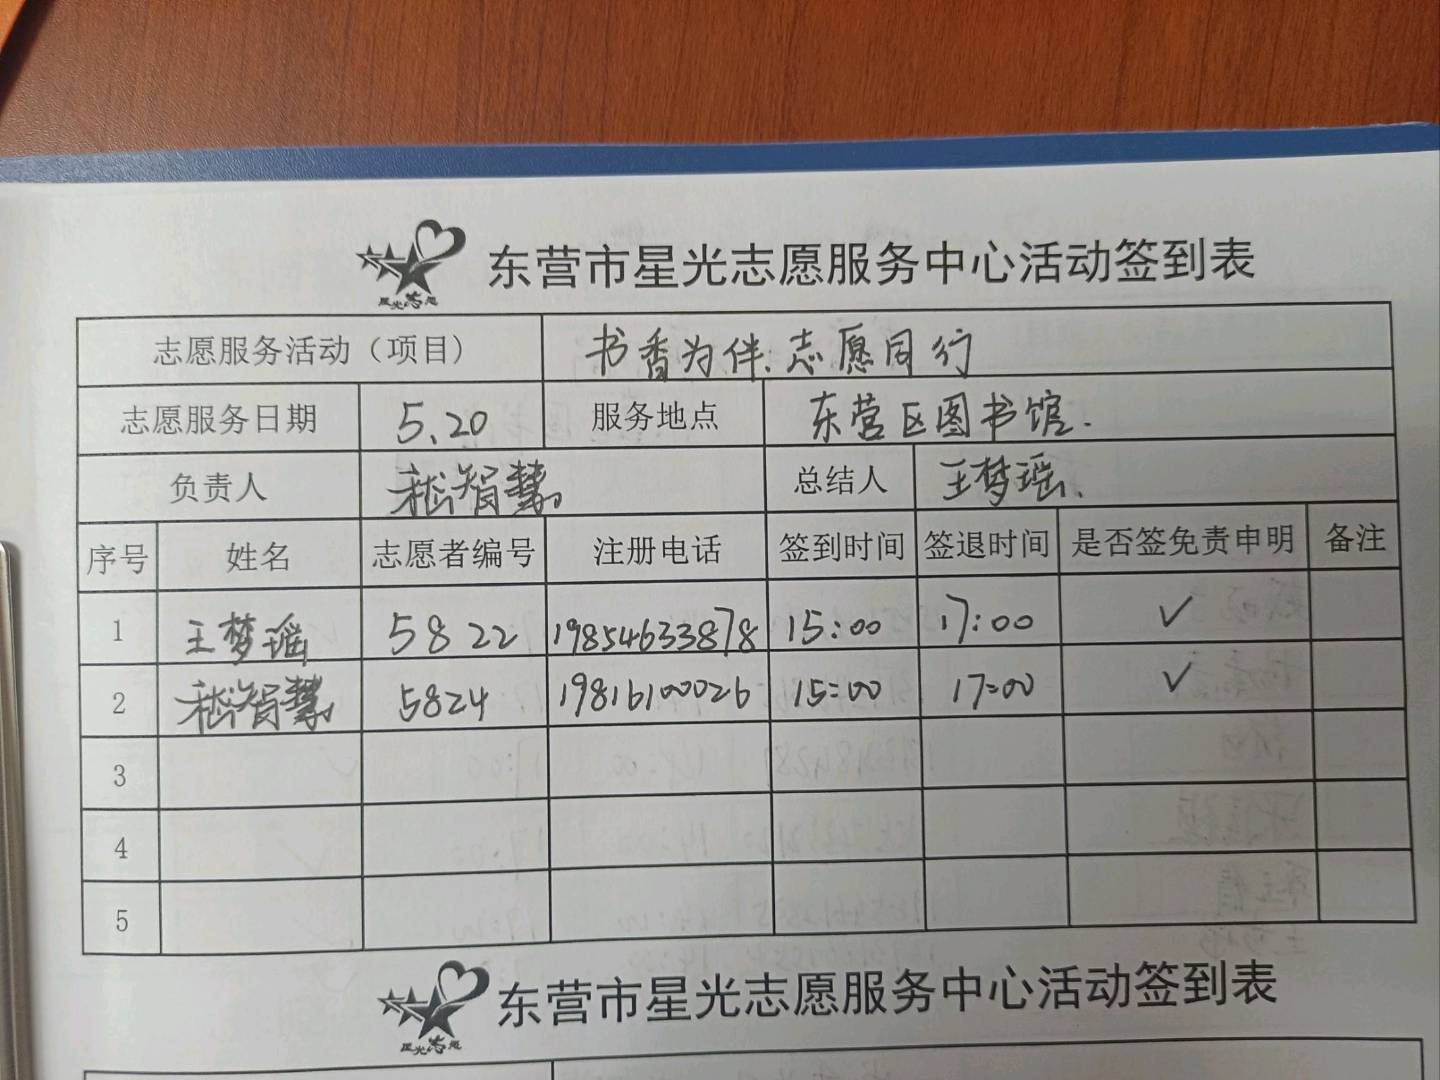 星光志愿
东营市星光志愿服务中心活动签到表
志愿服务活动（项目） 书香为伴、志愿同行
志愿服务日期 5.20 服务地点 东营区图书馆.
负责人 嵇智慧 总结人 王梦瑶、
序号 姓名 志愿者编号 注册电话 签到时间 签退时间 是否签免责申明 备注
1 王梦瑶 5822 19854633878 15:00 17:00 ✓
2 嵇智慧 5824 19816100026 15:00 17:00 ✓
3
4
5
星光志愿
东营市星光志愿服务中心活动签到表